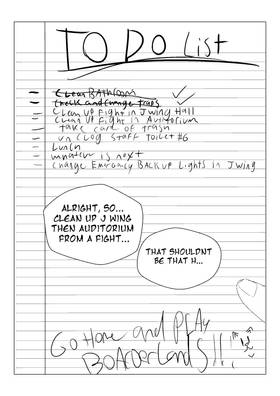 TO DO List
- CLEAN BATHROOM
- Check and Change Traps
- Clean up Fight in J Wing Hall
- Clean up Fight in Auditorium
- take care of trash
- un clog staff toilet #6
- Lunch
- whatever is next
- Change Emergency Back up Lights in J wing
ALRIGHT, SO...
CLEAN UP J WING
THEN AUDITORIUM
FROM A FIGHT...
THAT SHOULDNT
BE THAT H...
Go Home and Play
BOArderlandS!!